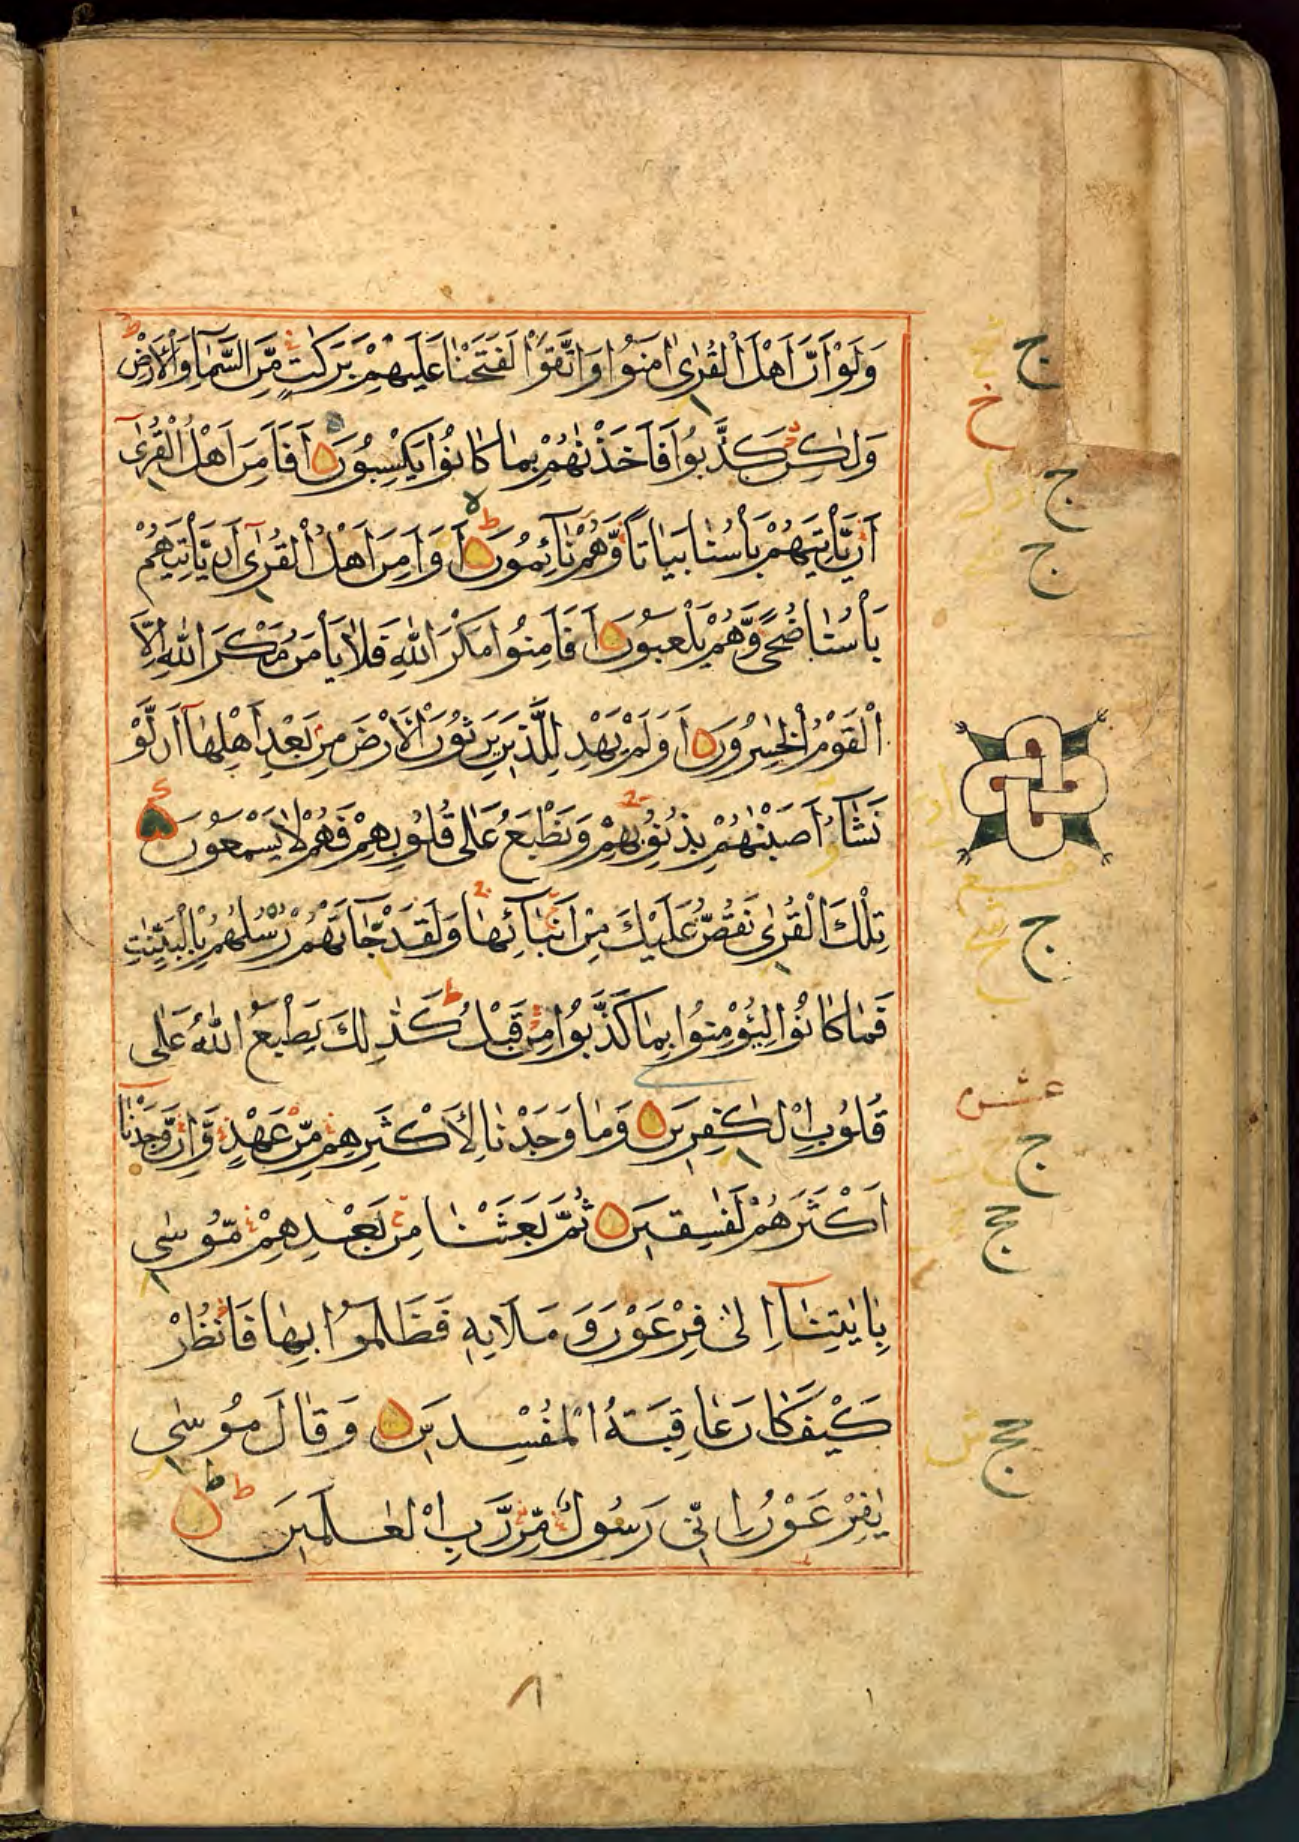 وَلَوْ اَنَّ اَهْلَ الْقُرٰى اٰمَنُوْا وَاتَّقَوْا لَفَتَحْنَا عَلَيْهِمْ بَرَكٰتٍ مِّنَ السَّمَآءِ وَالْاَرْضِ
وَلٰكِنْ كَذَّبُوْا فَاَخَذْنٰهُمْ بِمَا كَانُوْا يَكْسِبُوْنَ اَفَاَمِنَ اَهْلُ الْقُرٰٓى
اَنْ يَّاْتِيَهُمْ بَاْسُنَا بَيَاتًا وَّهُمْ نَآئِمُوْنَ اَوَاَمِنَ اَهْلُ الْقُرٰٓى اَنْ يَّاْتِيَهُمْ
بَاْسُنَا ضُحًى وَّهُمْ يَلْعَبُوْنَ اَفَاَمِنُوْا مَكْرَ اللّٰهِ فَلَا يَاْمَنُ مَكْرَ اللّٰهِ اِلَّا
الْقَوْمُ الْخٰسِرُوْنَ اَوَلَمْ يَهْدِ لِلَّذِيْنَ يَرِثُوْنَ الْاَرْضَ مِنْ بَعْدِ اَهْلِهَآ اَنْ لَّوْ
نَشَآءُ اَصَبْنٰهُمْ بِذُنُوْبِهِمْ وَنَطْبَعُ عَلٰى قُلُوْبِهِمْ فَهُمْ لَا يَسْمَعُوْنَ
تِلْكَ الْقُرٰى نَقُصُّ عَلَيْكَ مِنْ اَنْۢبَآئِهَا وَلَقَدْ جَآءَتْهُمْ رُسُلُهُمْ بِالْبَيِّنٰتِ
فَمَا كَانُوْا لِيُؤْمِنُوْا بِمَا كَذَّبُوْا مِنْ قَبْلُ كَذٰلِكَ يَطْبَعُ اللّٰهُ عَلٰى
قُلُوْبِ الْكٰفِرِيْنَ وَمَا وَجَدْنَا لِاَكْثَرِهِمْ مِّنْ عَهْدٍ وَّاِنْ وَّجَدْنَآ
اَكْثَرَهُمْ لَفٰسِقِيْنَ ثُمَّ بَعَثْنَا مِنْ بَعْدِهِمْ مُّوْسٰى
بِاٰيٰتِنَآ اِلٰى فِرْعَوْنَ وَمَلَا۟ئِهٖ فَظَلَمُوْا بِهَا فَانْظُرْ
كَيْفَ كَانَ عَاقِبَةُ الْمُفْسِدِيْنَ وَقَالَ مُوْسٰى
يٰفِرْعَوْنُ اِنِّيْ رَسُوْلٌ مِّنْ رَّبِّ الْعٰلَمِيْنَ
ج
خ
ج
ج
ج
عشر
ج